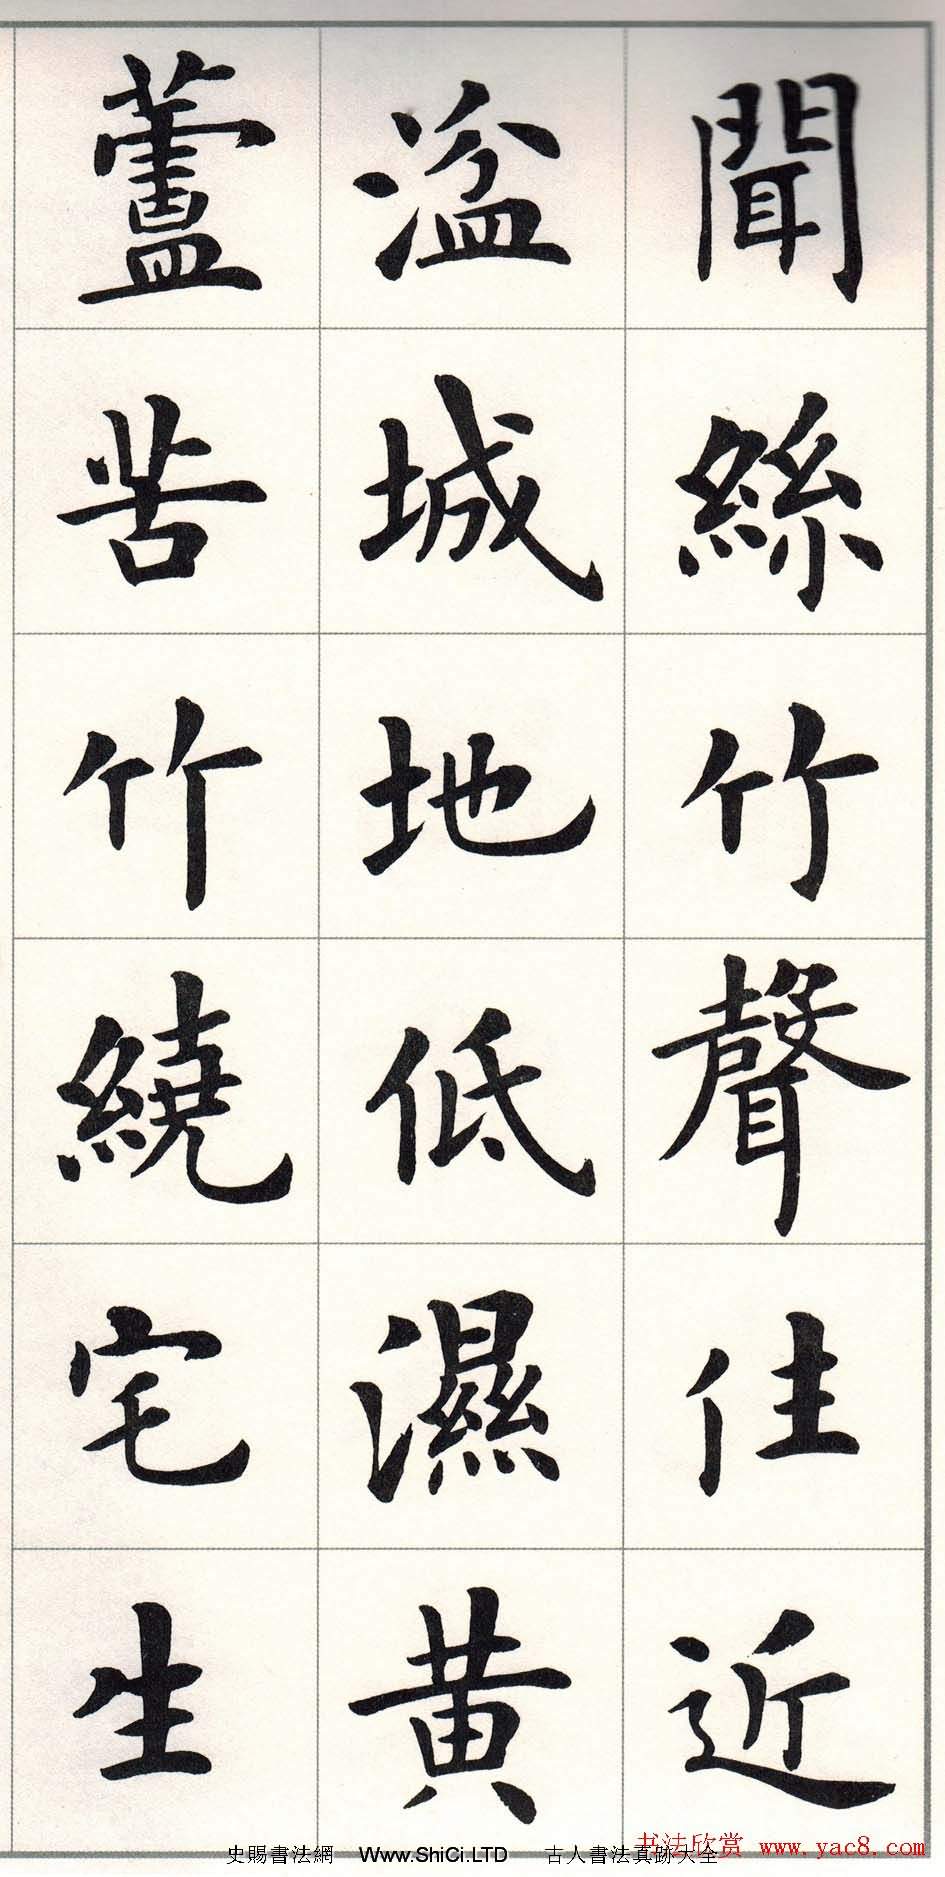 聞絲竹聲住近
湓城地低濕黄
蘆苦竹繞宅生
史賜書法網 Www.ShiCi.LTD 古人書法真跡大全
书法欣赏 www.yac8.com